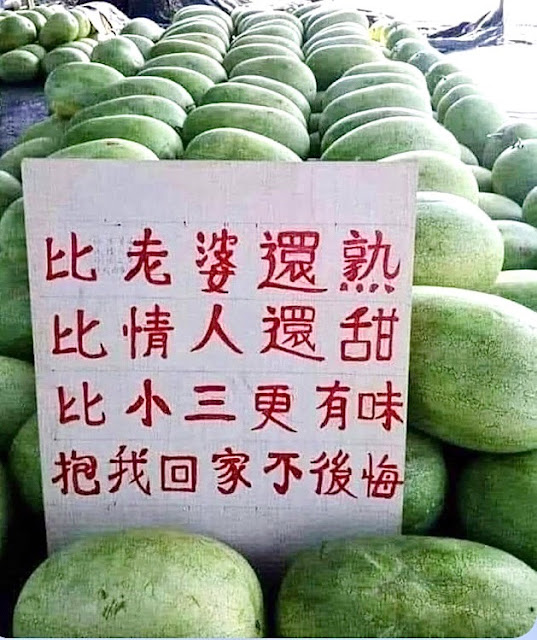 比老婆還熟
比情人還甜
比小三更有味
抱我回家不後悔